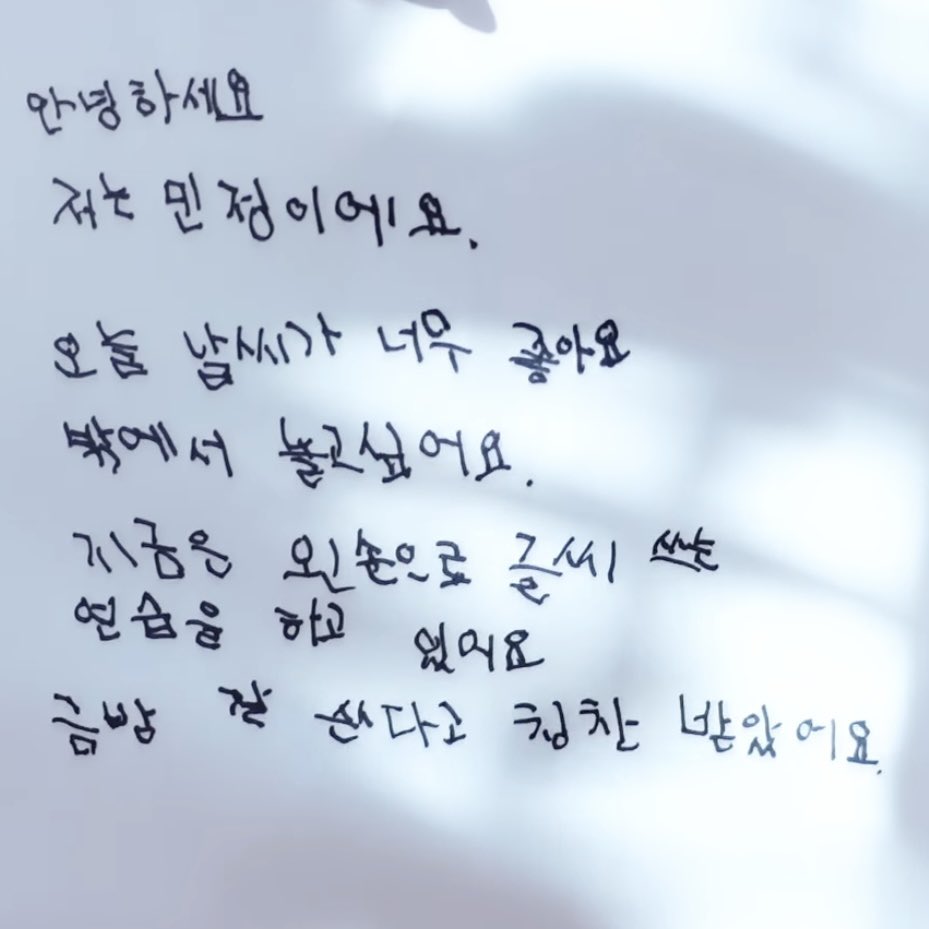 안녕하세요
저는 민정이에요.
오늘 날씨가 너무 좋아요
밖에서 놀고싶어요.
지금은 왼손으로 글씨 쓰는
연습을 하고 있어요
금방 잘 쓴다고 칭찬 받았어요.